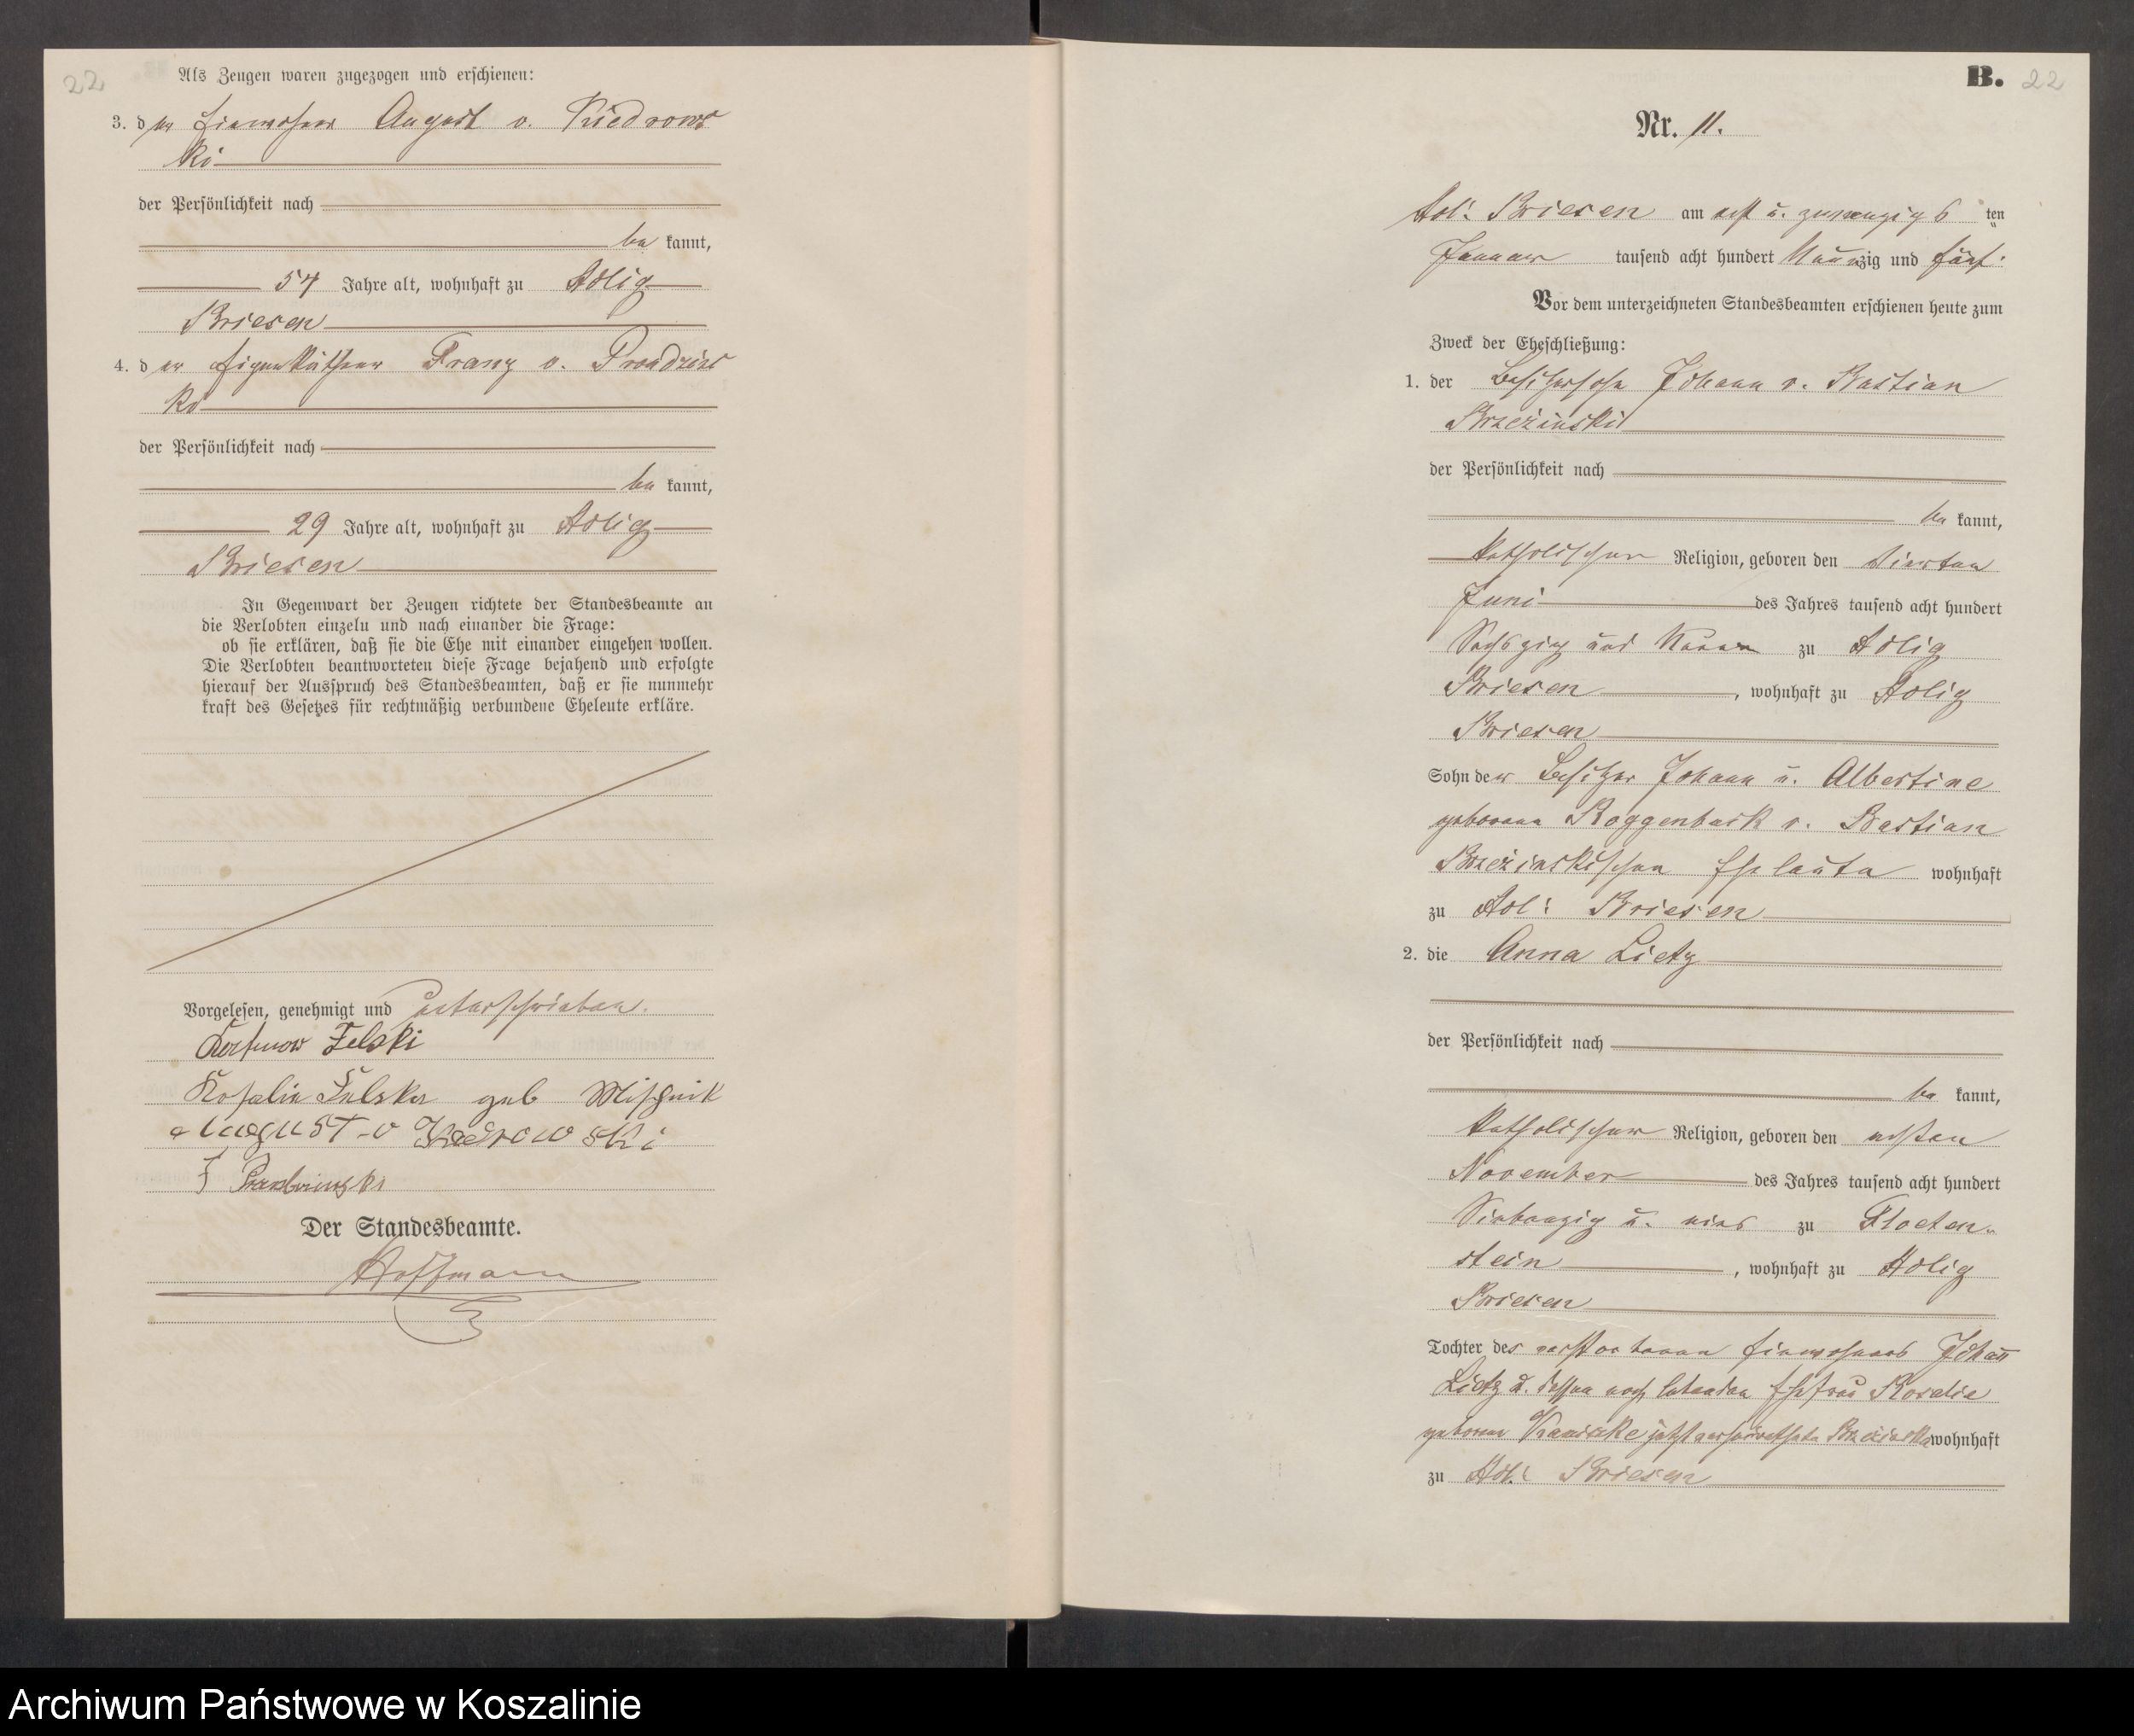 22
Als Zeugen waren zugezogen und erschienen:
3. der Einwohner August v. Kiedrows
ki
der Persönlichkeit nach
be kannt,
54 Jahre alt, wohnhaft zu Adlig
Briesen
4. der Eigenkäthner Franz v. Prondzins
ki
der Persönlichkeit nach
be kannt,
29 Jahre alt, wohnhaft zu Adlig
Briesen
In Gegenwart der Zeugen richtete der Standesbeamte an
die Verlobten einzeln und nach einander die Frage:
ob sie erklären, daß sie die Ehe mit einander eingehen wollen.
Die Verlobten beantworteten diese Frage bejahend und erfolgte
hierauf der Ausspruch des Standesbeamten, daß er sie nunmehr
kraft des Gesetzes für rechtmäßig verbundene Eheleute erkläre.
Vorgelesen, genehmigt und unterschrieben.
Felski
Rosalie Felska geb Mischnik
August v Kiedrowski
F
Der Standesbeamte.
Hoffmann
B. 22
Nr. 11.
Adl: Briesen am acht u. zwanzigs ten
Januar tausend acht hundert Neunzig und fünf.
Vor dem unterzeichneten Standesbeamten erschienen heute zum
Zweck der Eheschließung:
1. der Besitzersohn Johann v. Bastian
Brzezinski
der Persönlichkeit nach
be kannt,
katholischer Religion, geboren den vierten
Juni des Jahres tausend acht hundert
Sechszig und Neun zu Adlig
Briesen, wohnhaft zu Adlig
Briesen
Sohn der Besitzer Johann u. Albertine
geborene Roggenbuck v. Bastian
Brzezinskischen Eheleute wohnhaft
zu Adl: Briesen
2. die Anna Lietz
der Persönlichkeit nach
be kannt,
katholischer Religion, geboren den achten
November des Jahres tausend acht hundert
Siebenzig u. eins zu Floeten-
stein, wohnhaft zu Adlig
Briesen
Tochter des verstorbenen Einwohners Johann
Lietz u. dessen noch lebenden Ehefrau Rosalie
geborene jetzt verheirathete Brzezinska wohnhaft
zu Adl: Briesen
Archiwum Państwowe w Koszalinie